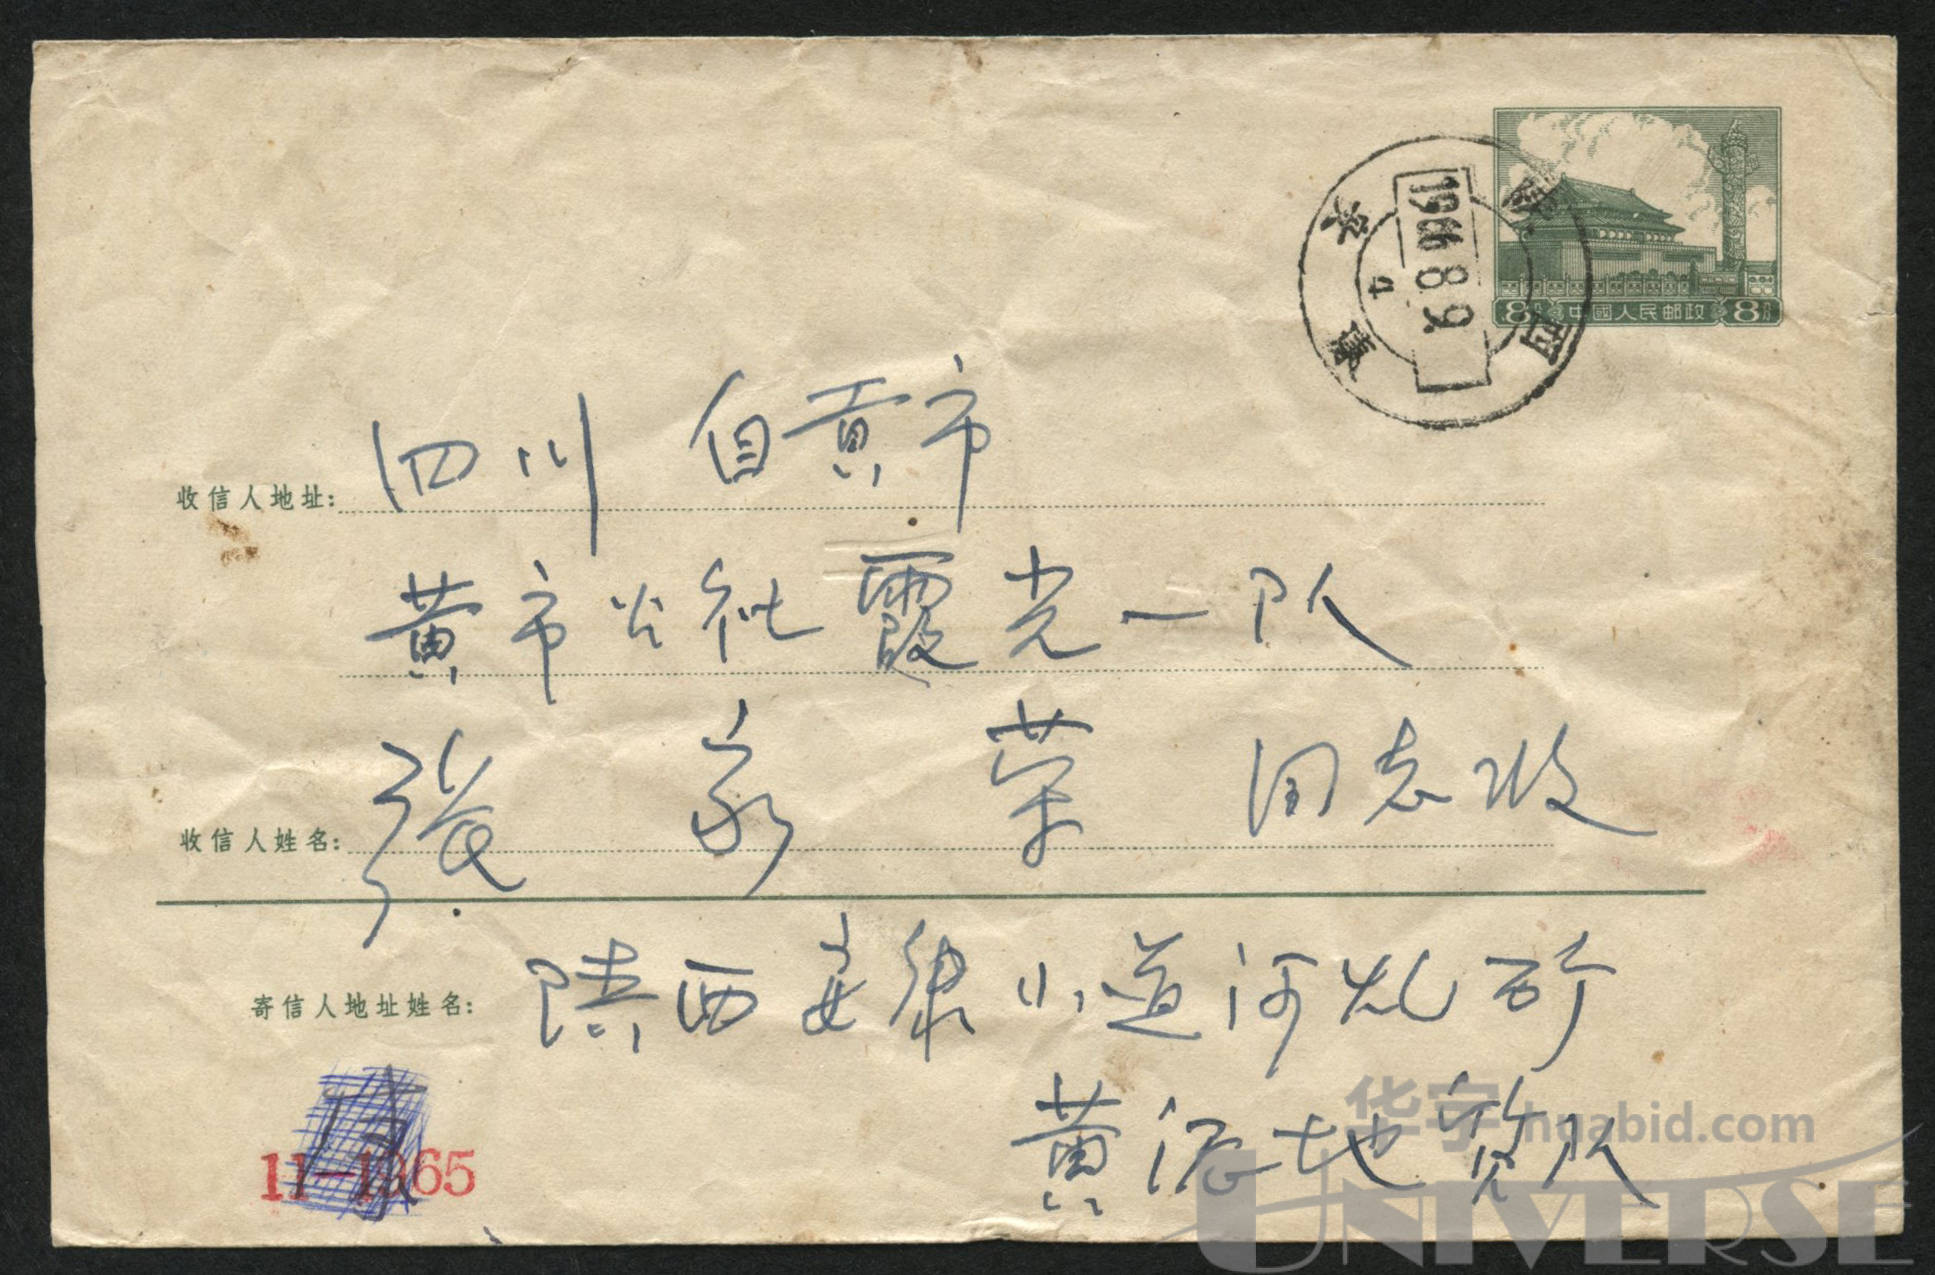 8分 中國人民邮政 8分
陕西
安康
1966.8.9.
4
四川 自贡市
收信人地址:
黄市公社霞光一队
张家荣 同志收
收信人姓名:
陕西安康小道河
寄信人地址姓名:
黄泥地 队
11-1965
华宇 huabid.com
UNIVERSE